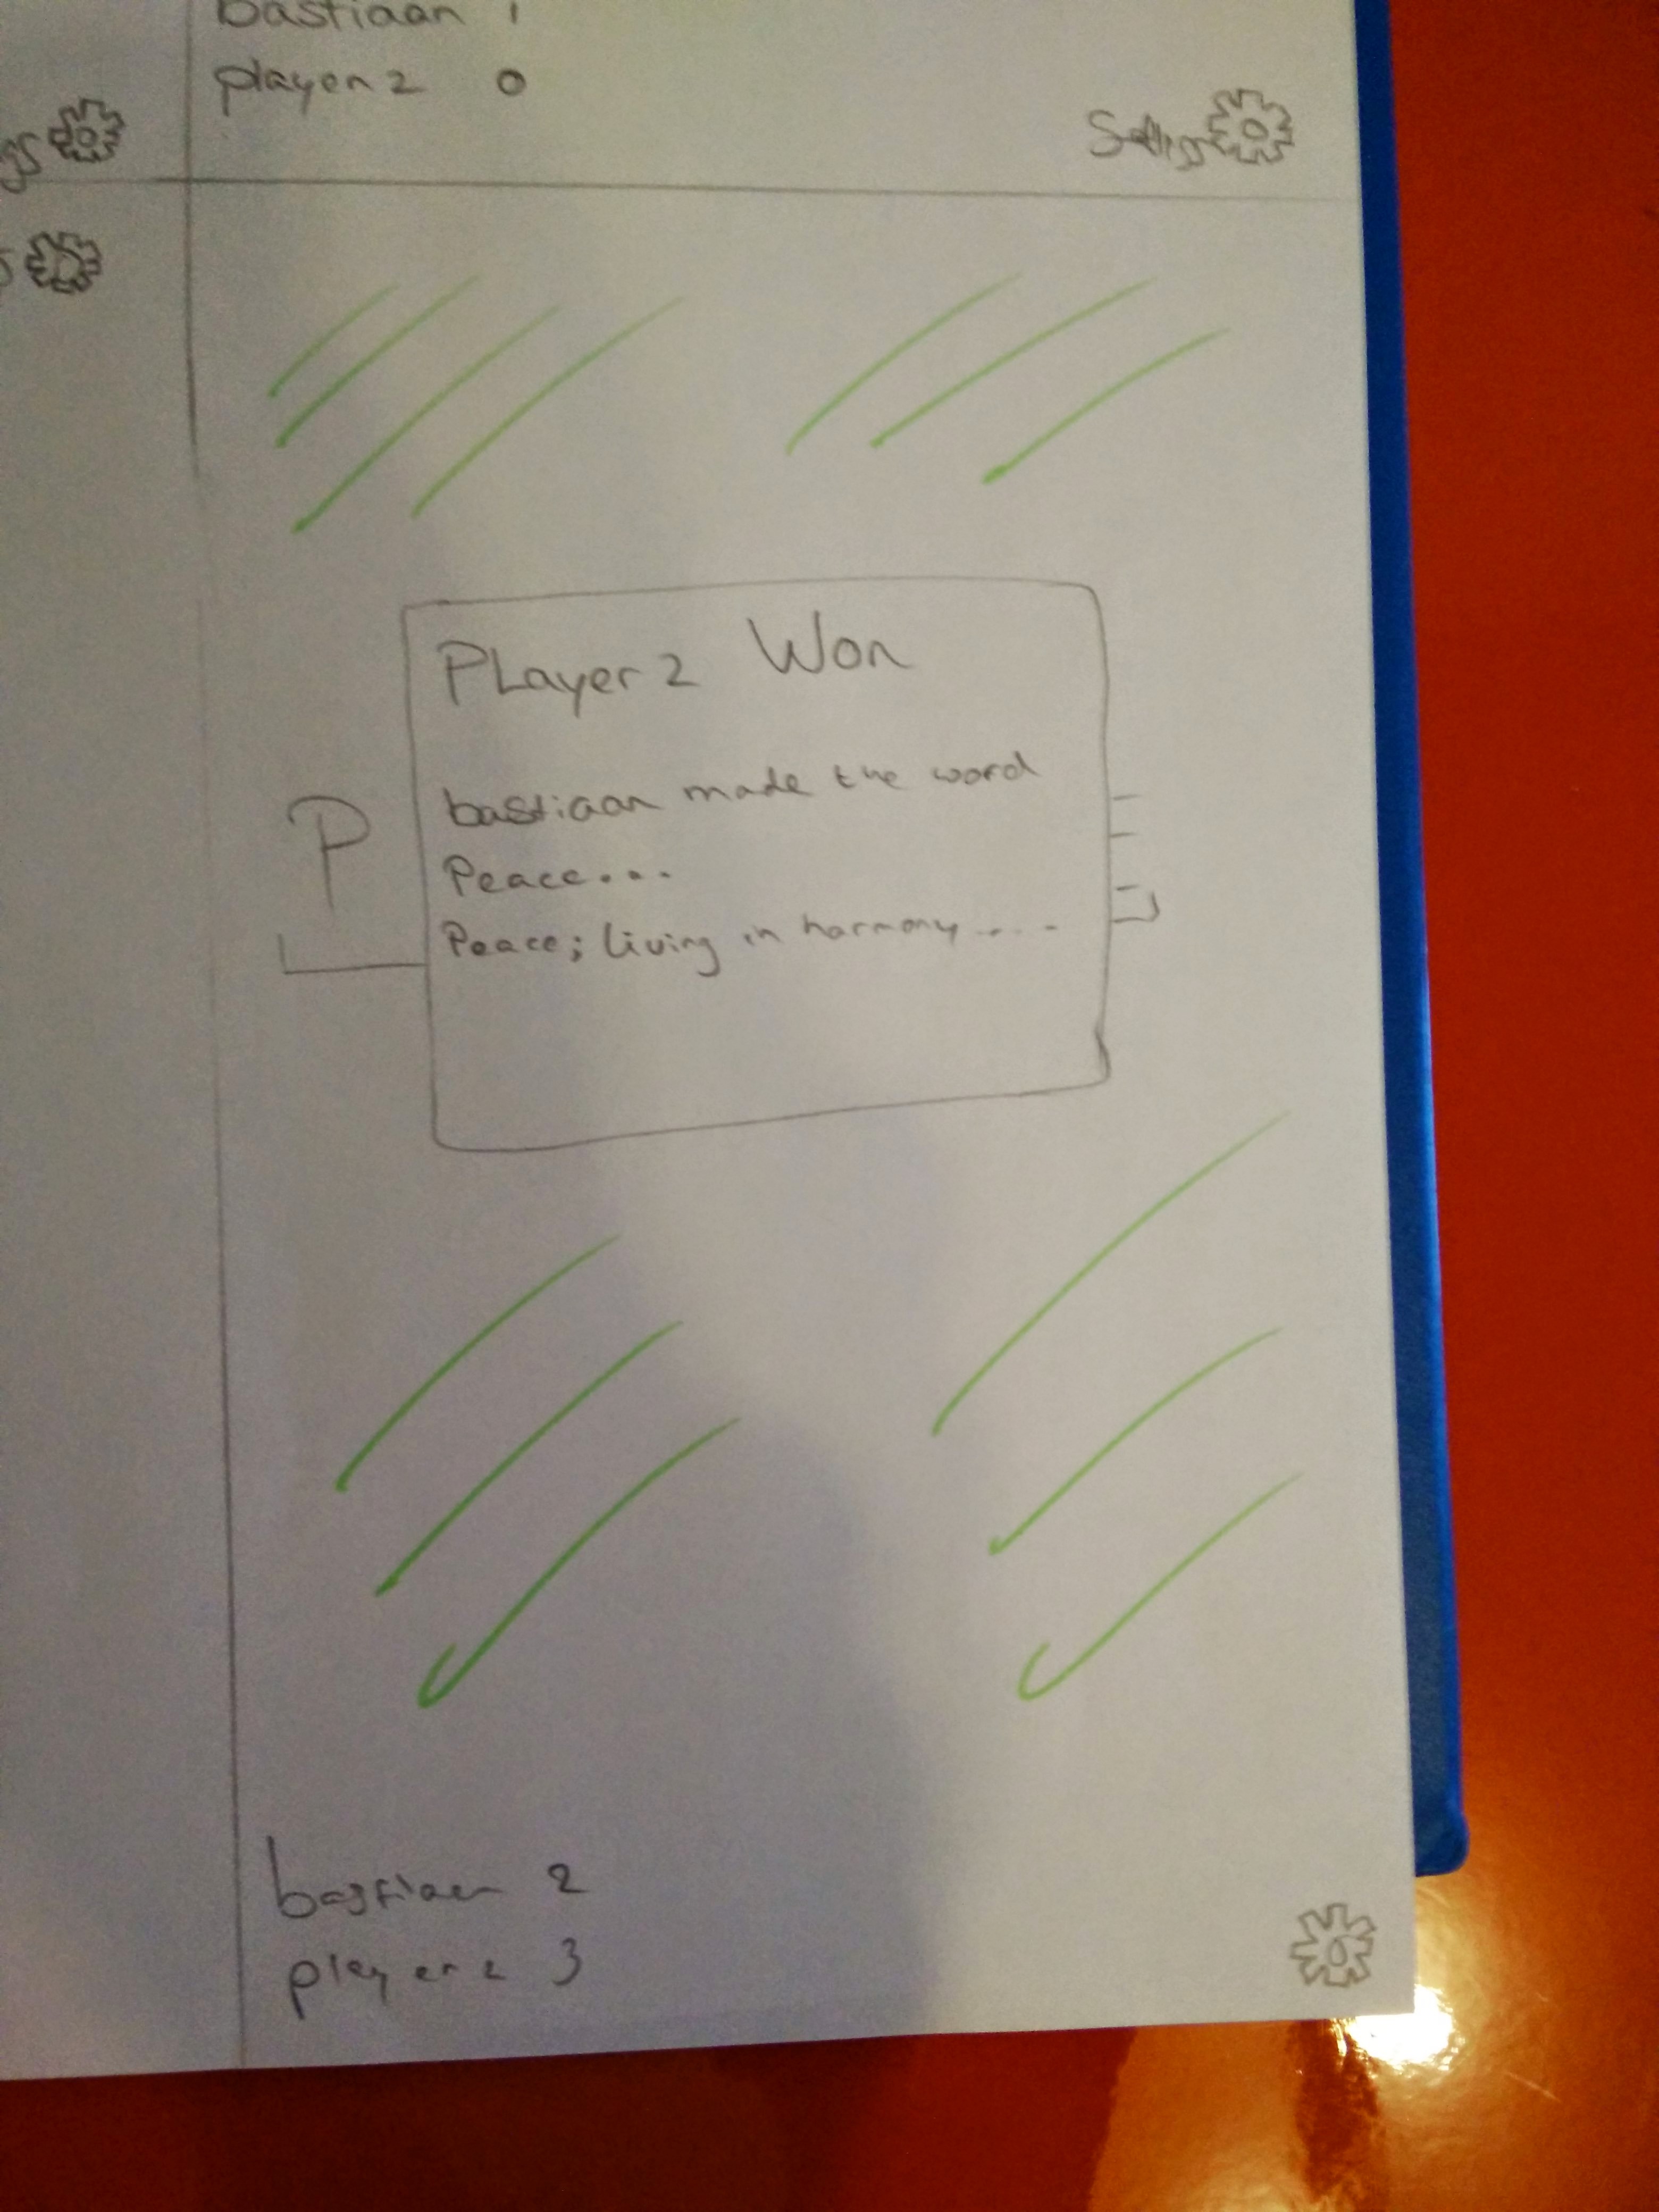 bastiaan 1
player 2 0
gs
Settings
s
PLayer 2 Won
bastiaan made the word
Peace...
Peace; living in harmony....
P
bastiaan 2
player 2 3